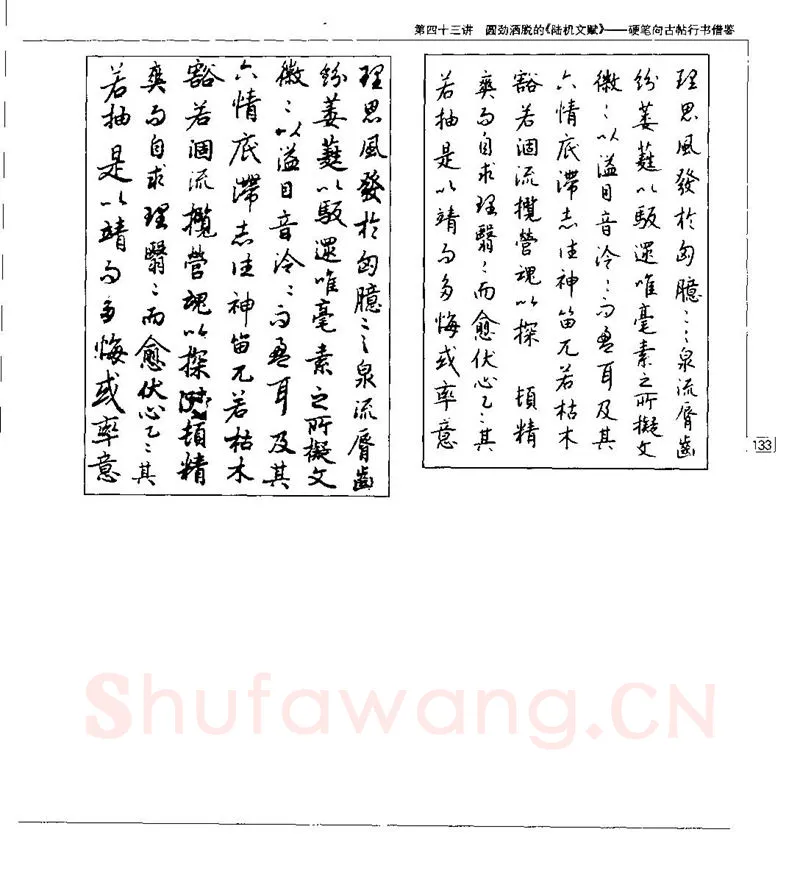 第四十三讲　圆劲洒脱的《陆机文赋》——硬笔向古帖行书借鉴
理思風發於匈臆言泉流脣齒
紛萎蕤以馺遝唯毫素之所擬文
徽〻以溢目音泠〻而盈耳及其
六情底滯志往神留兀若枯木
豁若涸流攬營魂以探賾頓精
爽而自求理翳〻而愈伏心乙〻其
若抽是以竭而多悔或率意
理思風發於匈臆言泉流脣齒
紛萎蕤以馺遝唯毫素之所擬文
徽〻以溢目音泠〻而盈耳及其
六情底滯志往神留兀若枯木
豁若涸流攬營魂以探 頓精
爽而自求理翳〻而愈伏心乙〻其
若抽是以竭而多悔或率意
133
Shufawang.CN